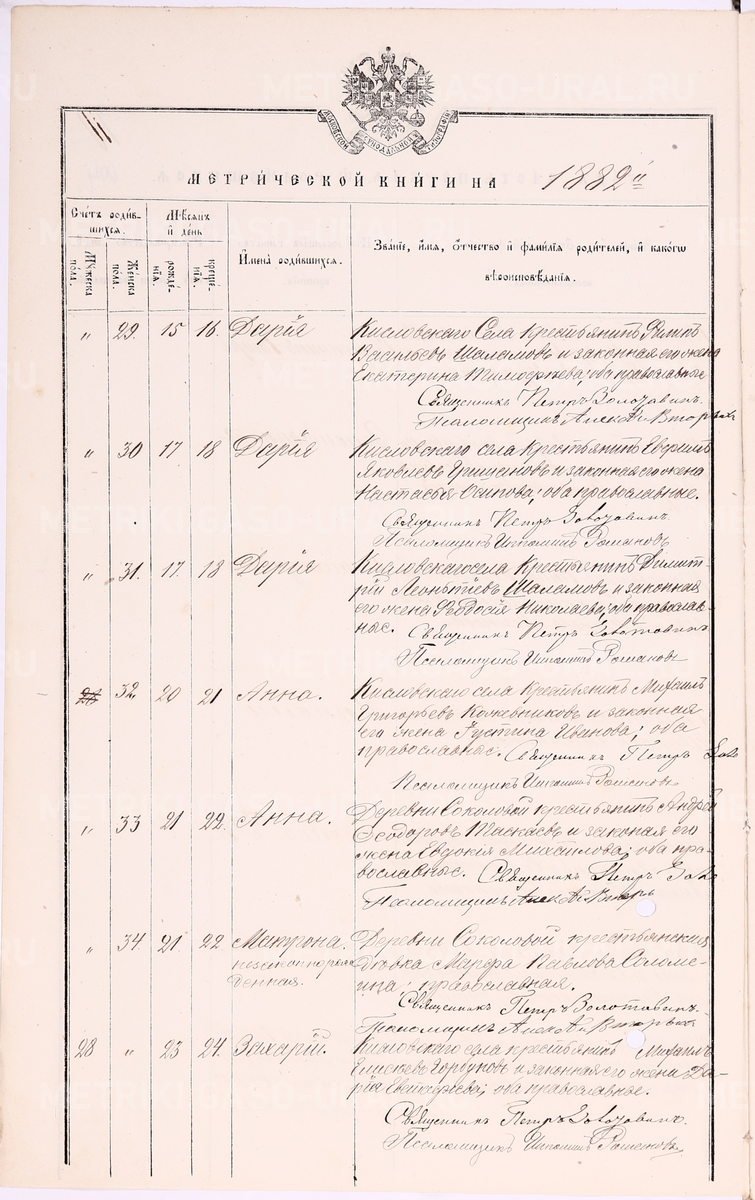 МОСКОВСКОЙ СИНОДАЛЬНОЙ ТИПОГРАФІИ
МЕТРИ́ЧЕСКОЙ КНИ́ГИ НА 1882 й
Сче́тъ роди́в-
шихся.
Мꙋ́жеска
пола.
Же́нска
пола.
Мѣ́сяцъ
и҆ де́нь
рожде́-
нїѧ.
креще́-
нїѧ.
И҆мена̀ роди́вшихся.
Зва́нїе, и҆́мѧ, ѻ҆́тчество и҆ фами́лїѧ роди́телей, и҆ како́гѡ
вѣроисповѣ́данїѧ.
" 29. 15 16. Дарія
Кисловскаго Села крестьянинъ
Васильевъ Шаламовъ и законная его жена
Екатерина Тимофеева, оба православные
Священникъ Петръ
Псаломщикъ
" 30 17 18 Дарія
Кисловскаго села Крестьянинъ
Яковлевъ и законная его жена
Настасья Осипова; оба православные.
Священникъ Петръ
Псаломщикъ Романовъ
" 31. 17. 18 Дарія
Кисловскаго села Крестьянинъ Димит-
рій Леонтіевъ Шаламовъ и законная
его жена Ѳеодосія Николаева, оба православ-
ные. Священникъ Петръ
Псаломщикъ Романовъ
32. 20 21 Анна.
Кисловскаго села крестьянинъ Михаилъ
Григорьевъ Кожевниковъ и законная
его жена Іустина Иванова; оба
православные. Священникъ Петръ
Псаломщикъ Романовъ
" 33 21 22. Анна.
Деревни Соколовой крестьянинъ Андрей
Ѳеодоровъ Таскаевъ и законая его
жена Евдокія Михаилова; оба пра-
вославные. Священникъ Петръ
Псаломщикъ
" 34. 21 22 Матрона.
незаконнорож
денная.
Деревни Соколовой крестьянская
дѣвка Марѳа Павлова Соломе-
ина; православная.
Священникъ Петръ
Псаломщикъ
28 " 23 24. Захарій.
Кисловскаго села крестьянинъ Михаилъ
Горбуновъ и законная его жена Да-
рія; оба православные.
Священникъ Петръ
Псаломщикъ Романовъ